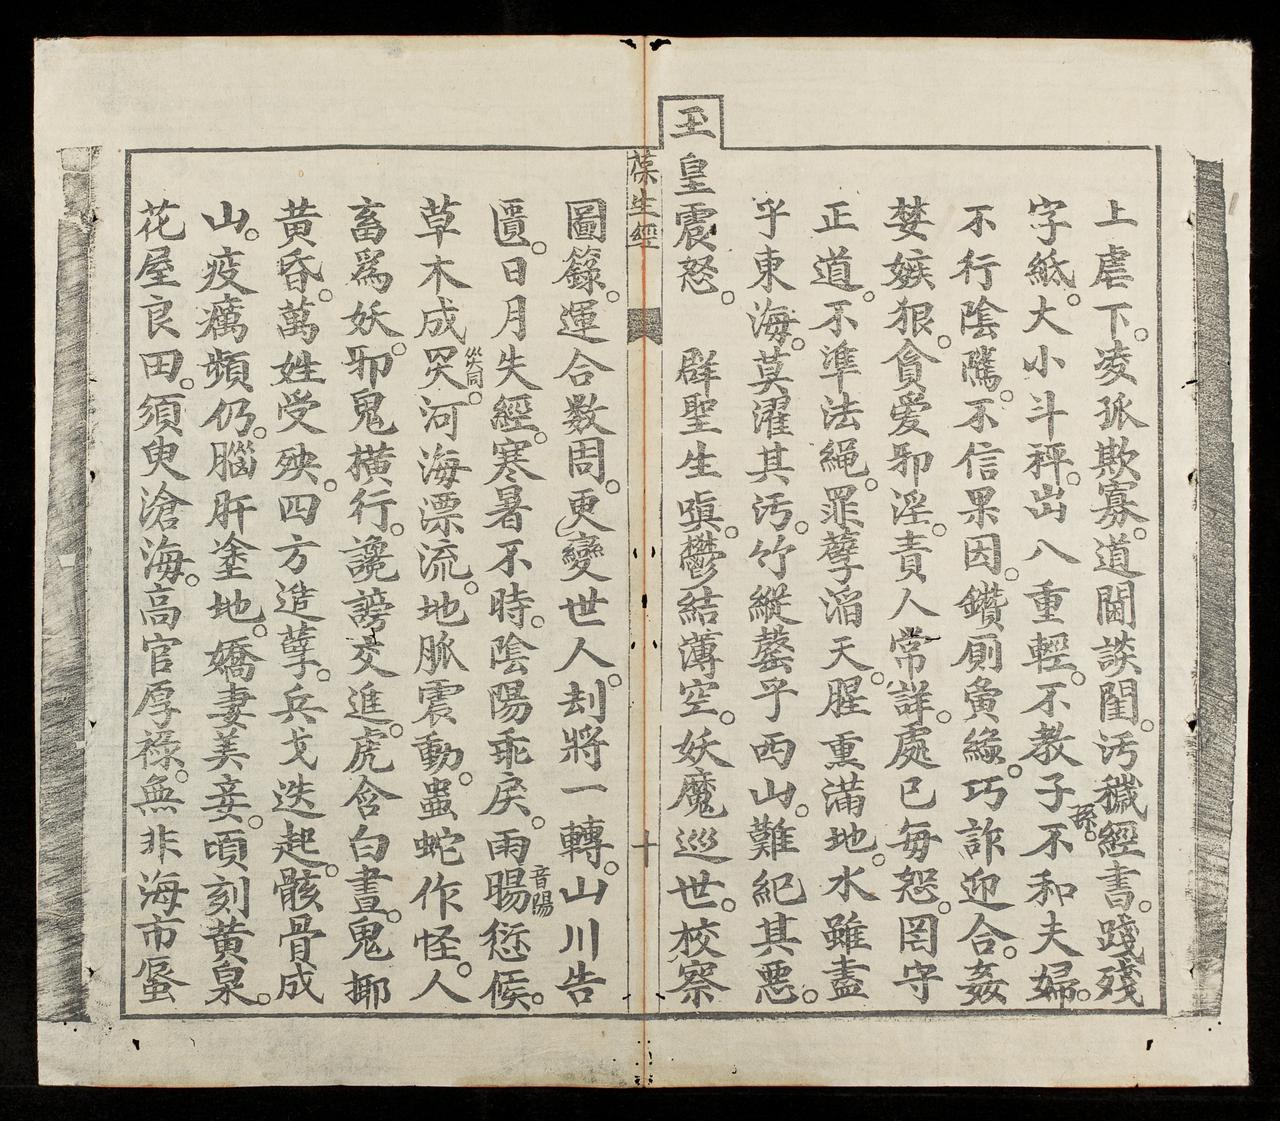 上虐下。凌孤欺寡。道閫談閨。汚穢經書。踐殘
字紙。大小斗秤。出入重輕。不教子孫。不和夫婦。
不行陰隲。不信果因。鑽厠夤緣。巧詐迎合。姦
婪嫉狠。貪爱邪淫。責人常詳。處已每恕。罔守
正道。不準法䋲。罪孽滔天。腥熏滿地。水雖盡
乎東海。莫濯其汚。竹縱罄乎西山。難紀其惡。
玉皇震怒。羣聖生嗔。鬱結薄空。妖魔巡世。校察
葆生經
十
圖籙。運合数周。更變世人。刦將一轉。山川告
匱。日月失經。寒暑不時。陰陽乖戾。雨暘音陽愆候。
草木成灾災同。河海漂流。地脈震動。蟲蛇作怪。人
畜爲妖。邪鬼橫行。讒謗交進。虎含白晝。鬼揶
黄昏。萬姓受殃。四方造孽。兵戈迭起。骸骨成
山。疫癘頻仍。腦肝塗地。嬌妻美妾。頃刻黄泉。
花屋良田。須臾滄海。高官厚禄。無非海市蜃